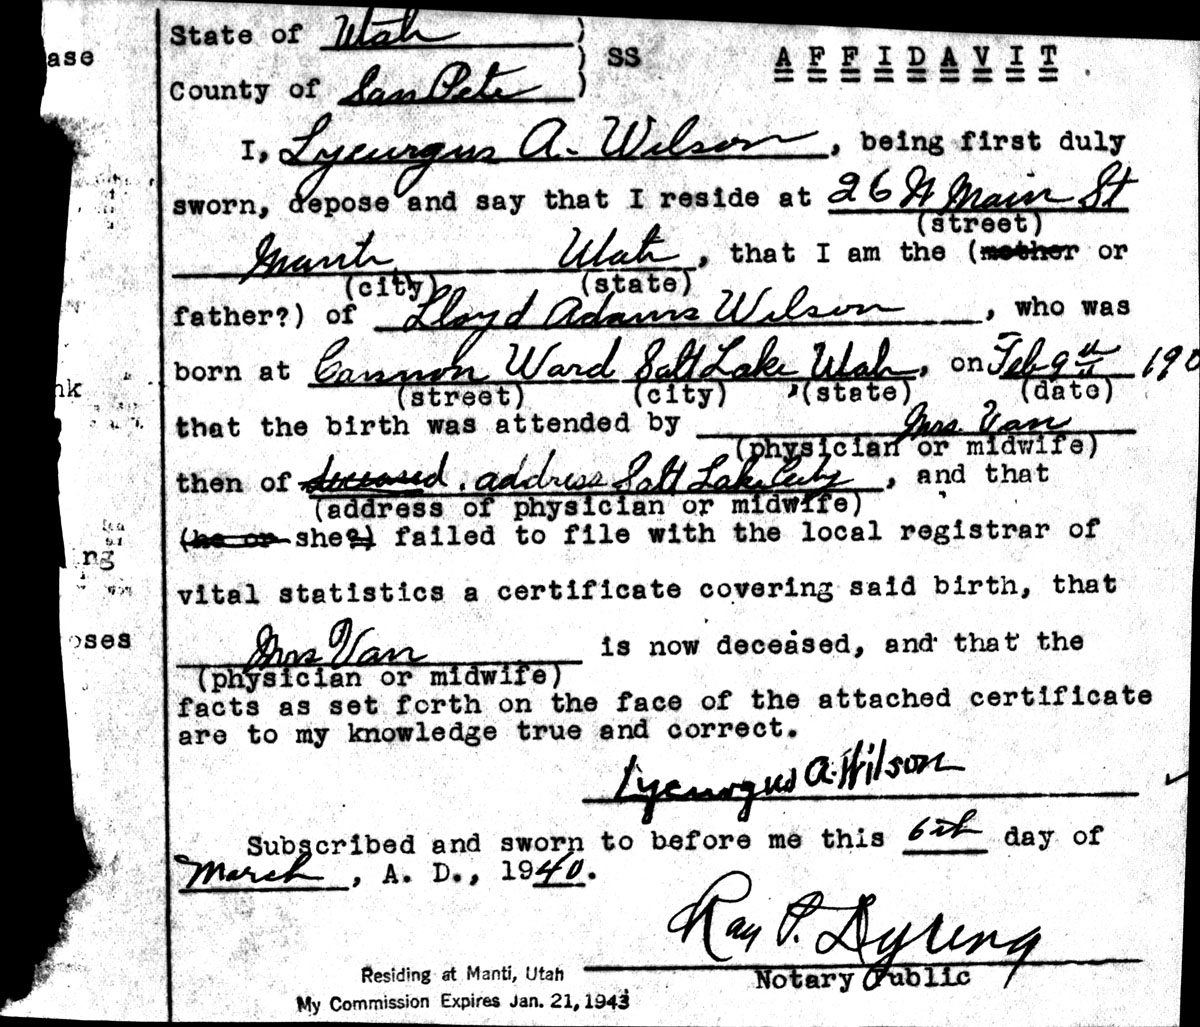 State of Utah )
ase
SS A F F I D A V I T
County of San Pete )
I, Lycurgus A. Wilson, being first duly
sworn, depose and say that I reside at 26 N Main St
(street)
Manti Utah, that I am the (mother or
(city) (state)
father?) of Lloyd Adams Wilson, who was
born at Cannon Ward Salt Lake Utah, on Feb 9th 190
nk
(street) (city) (state) (date)
that the birth was attended by Mrs. Van
(physician or midwife)
then of deceased. address Salt Lake City, and that
(address of physician or midwife)
(he or she?) failed to file with the local registrar of
ng
vital statistics a certificate covering said birth, that
oses
Mrs Van is now deceased, and that the
(physician or midwife)
facts as set forth on the face of the attached certificate
are to my knowledge true and correct.
Lycurgus A. Wilson
Subscribed and sworn to before me this 6th day of
March, A. D., 1940.
Ray P. Dyreng
Notary Public
Residing at Manti, Utah
My Commission Expires Jan. 21, 1943